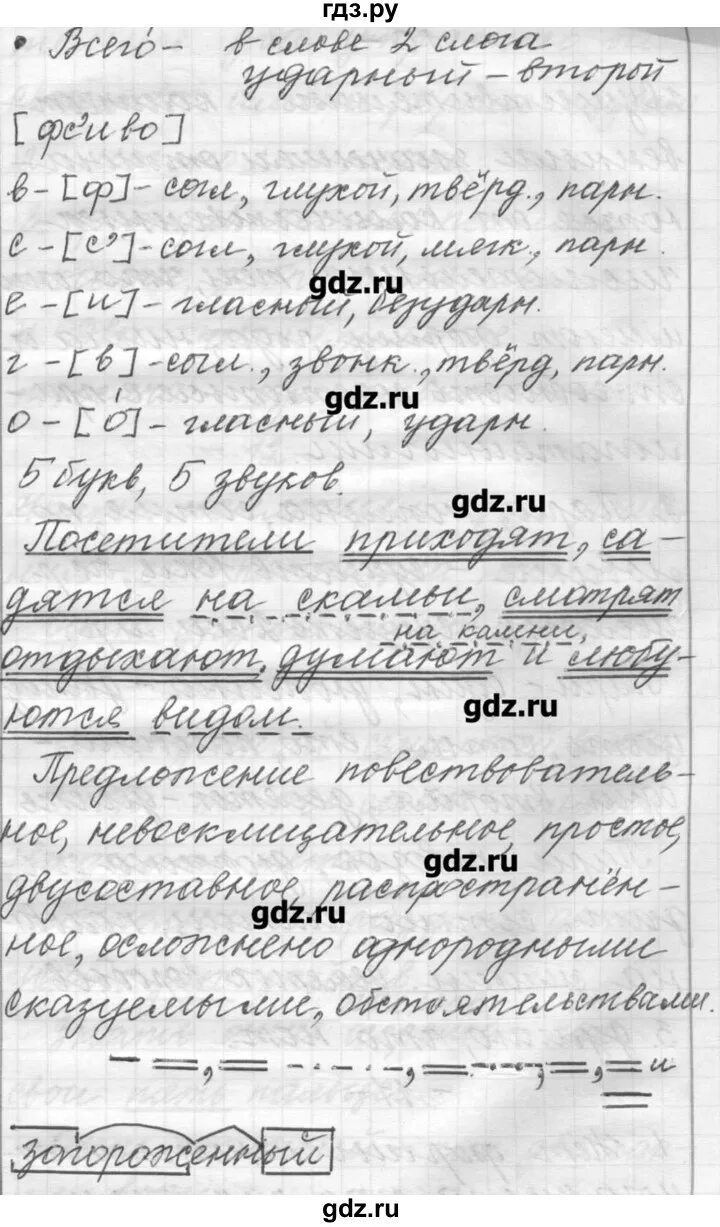 гдз.ру
• Всего́ – в слове 2 слога
ударный – второй
[фс'иво]
в – [ф] – согл., глухой, твёрд., парн.
с – [с'] – согл., глухой, мягк., парн.
gdz.ru
е – [и] – гласный, безударн.
г – [в] – согл., звонк., твёрд, парн.
gdz.ru
о – [о́] – гласный, ударн.
5 букв, 5 звуков.
gdz.ru
Посетители приходят, са-
дятся на скамьи, смотрят
на камни,
отдыхают, думают и любу-
ются видом.
gdz.ru
Предложение повествователь-
ное, невосклицательное, простое,
gdz.ru
двусоставное, распространён-
gdz.ru
ное, осложнено однородными
сказуемыми, обстоятельствами.
, , , , и
загороженный
gdz.ru